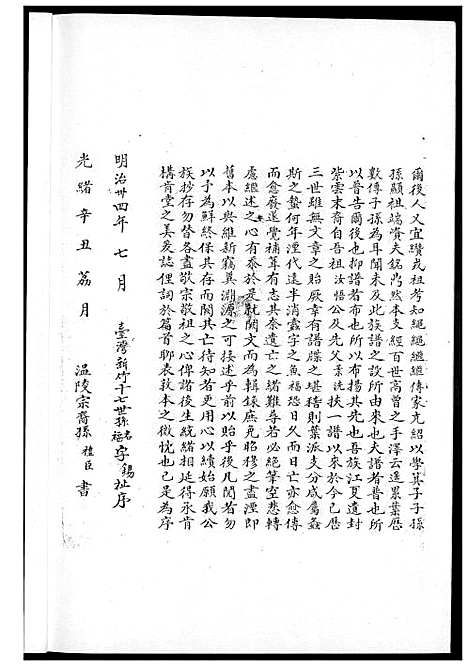 爾後人又宜纘戎祖考知繩繩繼繼傳家克紹以學箕子子孫
孫顯祖端資夫銘乃然本支經百世高曾之手澤云遙累葉歷
數傳子孫為耳聞未及此族譜之設所由來也夫譜者普也所
以普告爾後也抑譜者布也所以布揚其先也吾族江夏遺封
紫雲末裔自吾祖汝悟公及先父柔洗挾一譜以來於今已歷
三世雖無文章之貽厥幸有譜牒之堪稽則葉派支分咸屬螽
斯之蟄何年湮代遠半消蠹字之魚福恐日久而日亡亦愈傳
而愈廢遂覺補葺有志其奈遺亡之緒難尋若必絕筆空悲轉
慮繼述之心有忝於是就闕文而為輯錄庶免昭穆之盡湮即
舊本以與維新竊冀淵源之可接述乎前以貽乎後凡閱者勿
以予為鮮終保其存而闕其亡待知者更用心以續始願我公
族抄存勿替各盡敬宗敬祖之心俾諸後生統緒相延得永肯
構肯堂之美爰誌俚詞於篇首聊表敘本之微忱也已是為序
明治卅四年七月 臺灣新竹十七世孫名福字錫祉序
光緒辛丑荔月 温陵宗裔孫禮臣書